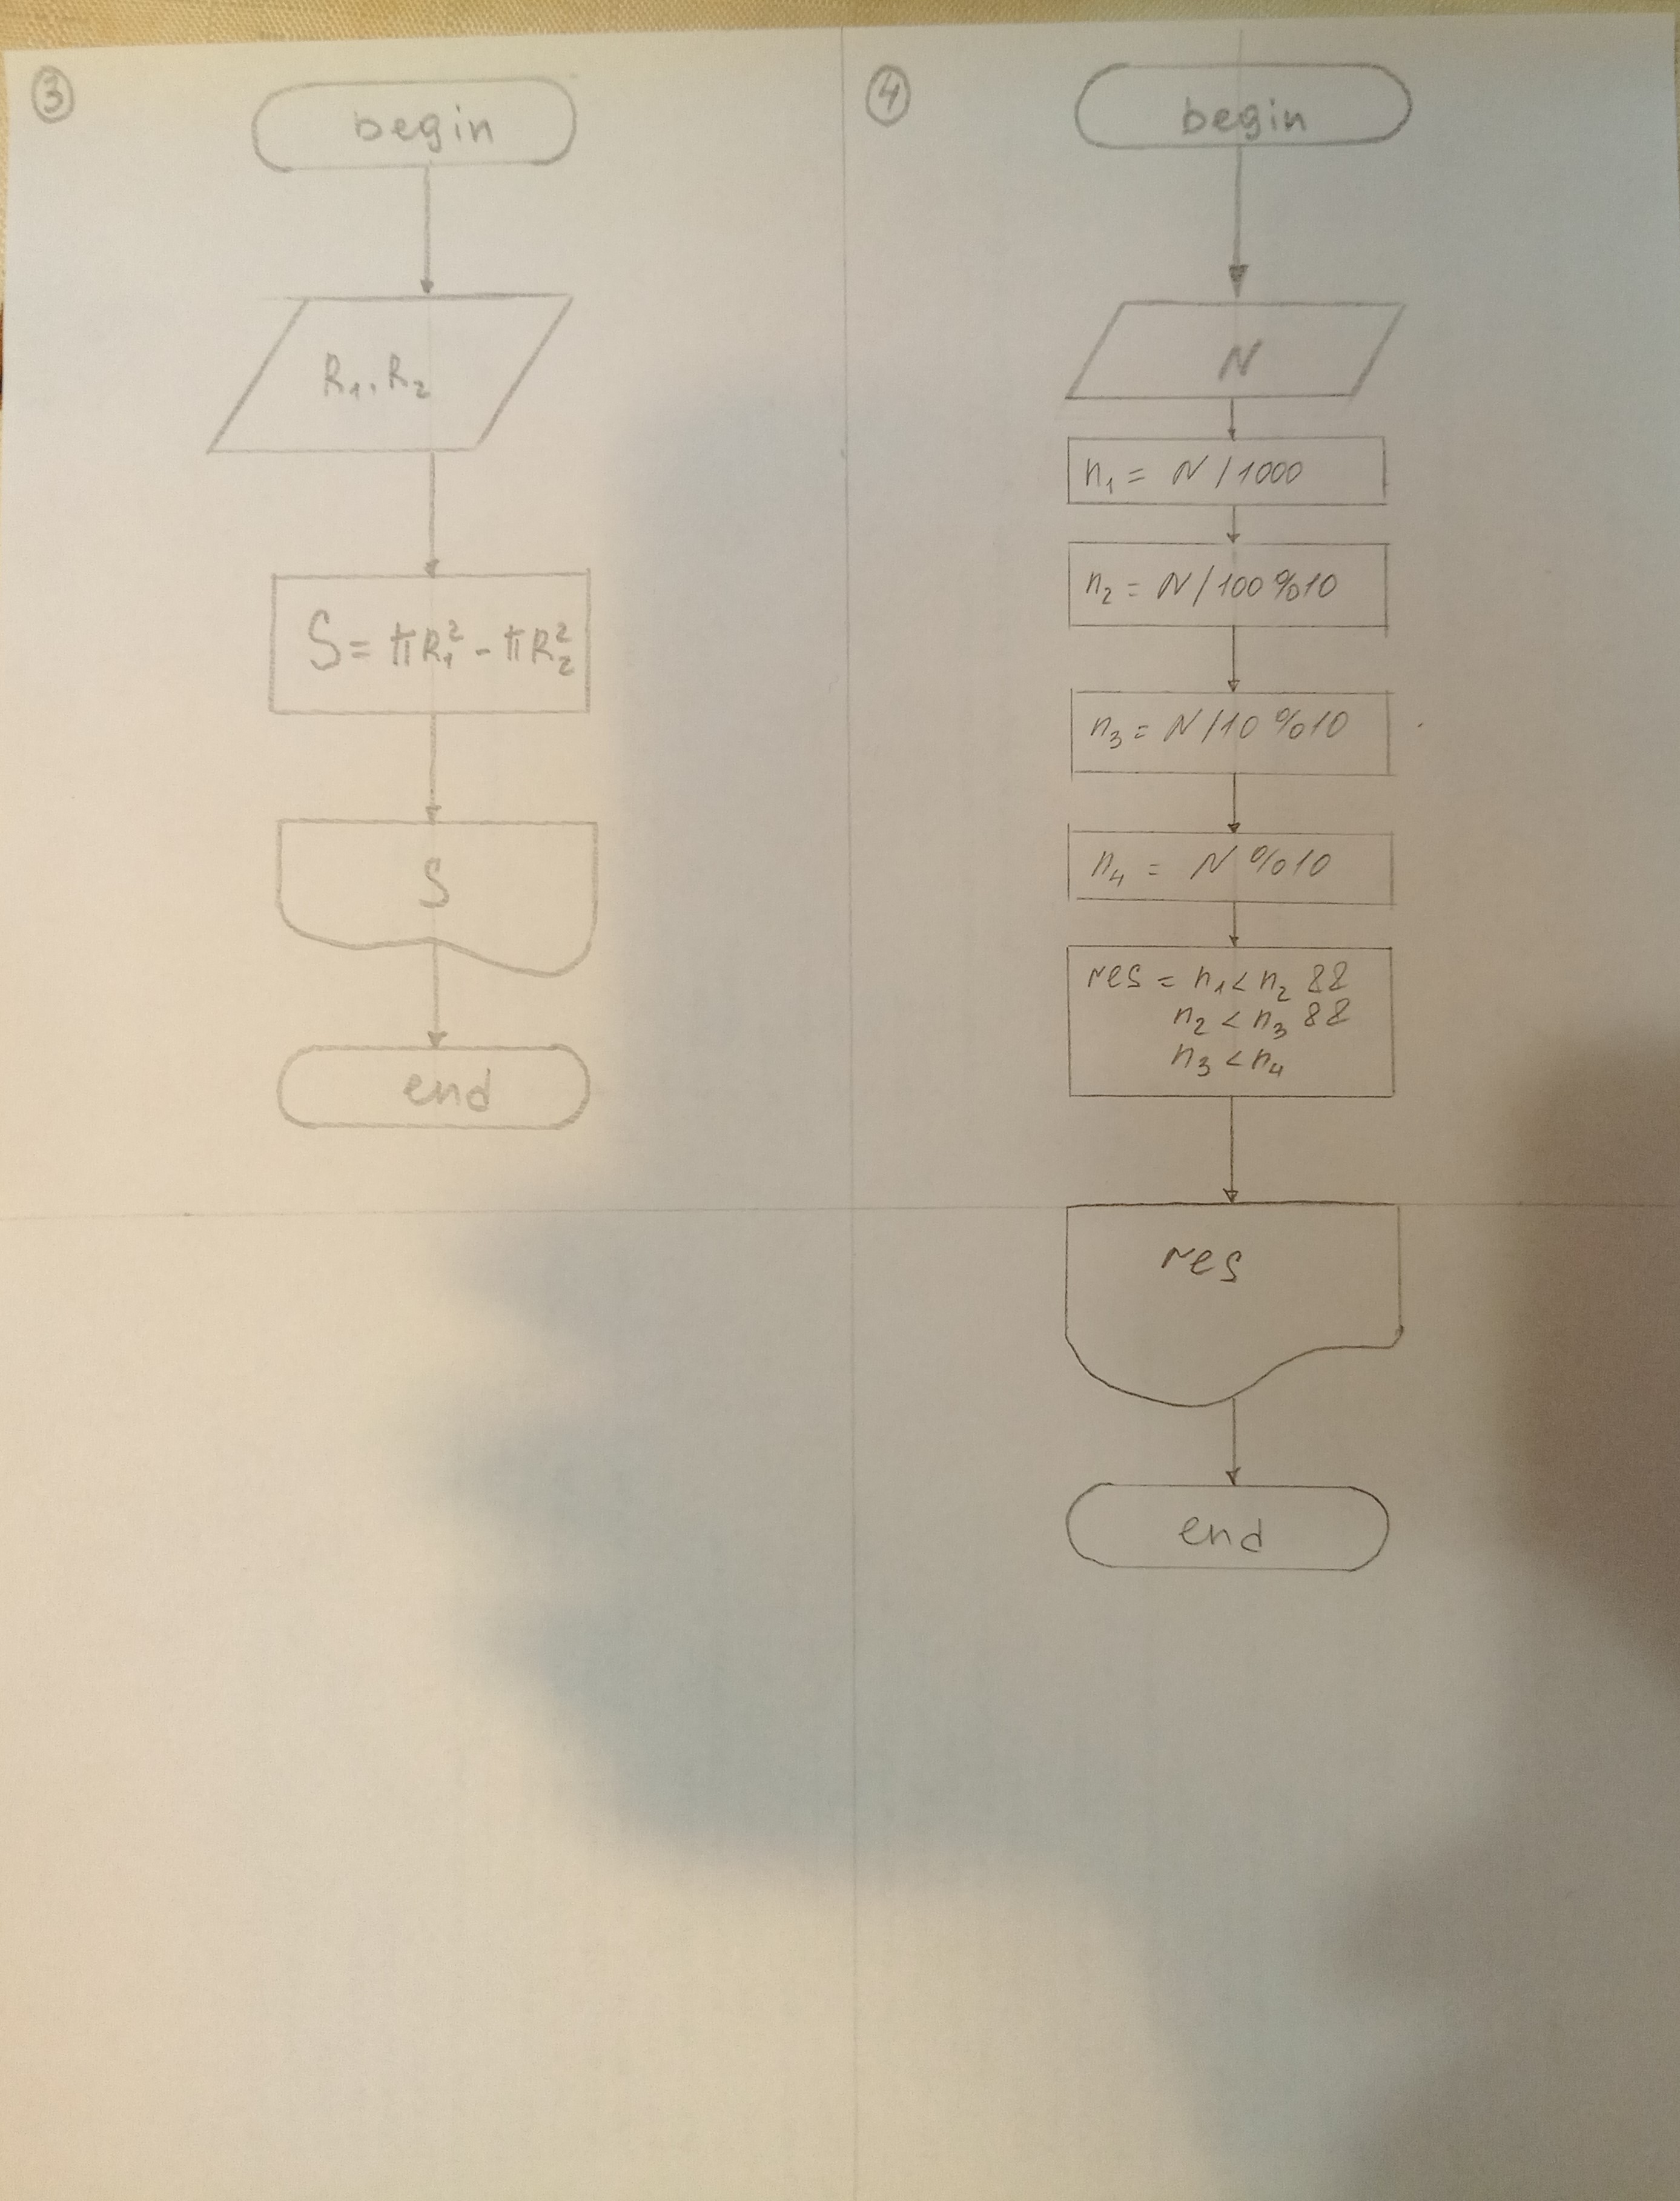 3
begin
R₁, R₂
S = πR₁² - πR₂²
S
end
4
begin
N
n₁ = N / 1000
n₂ = N / 100 % 10
n₃ = N / 10 % 10
n₄ = N % 10
res = n₁ < n₂ &&
n₂ < n₃ &&
n₃ < n₄
res
end